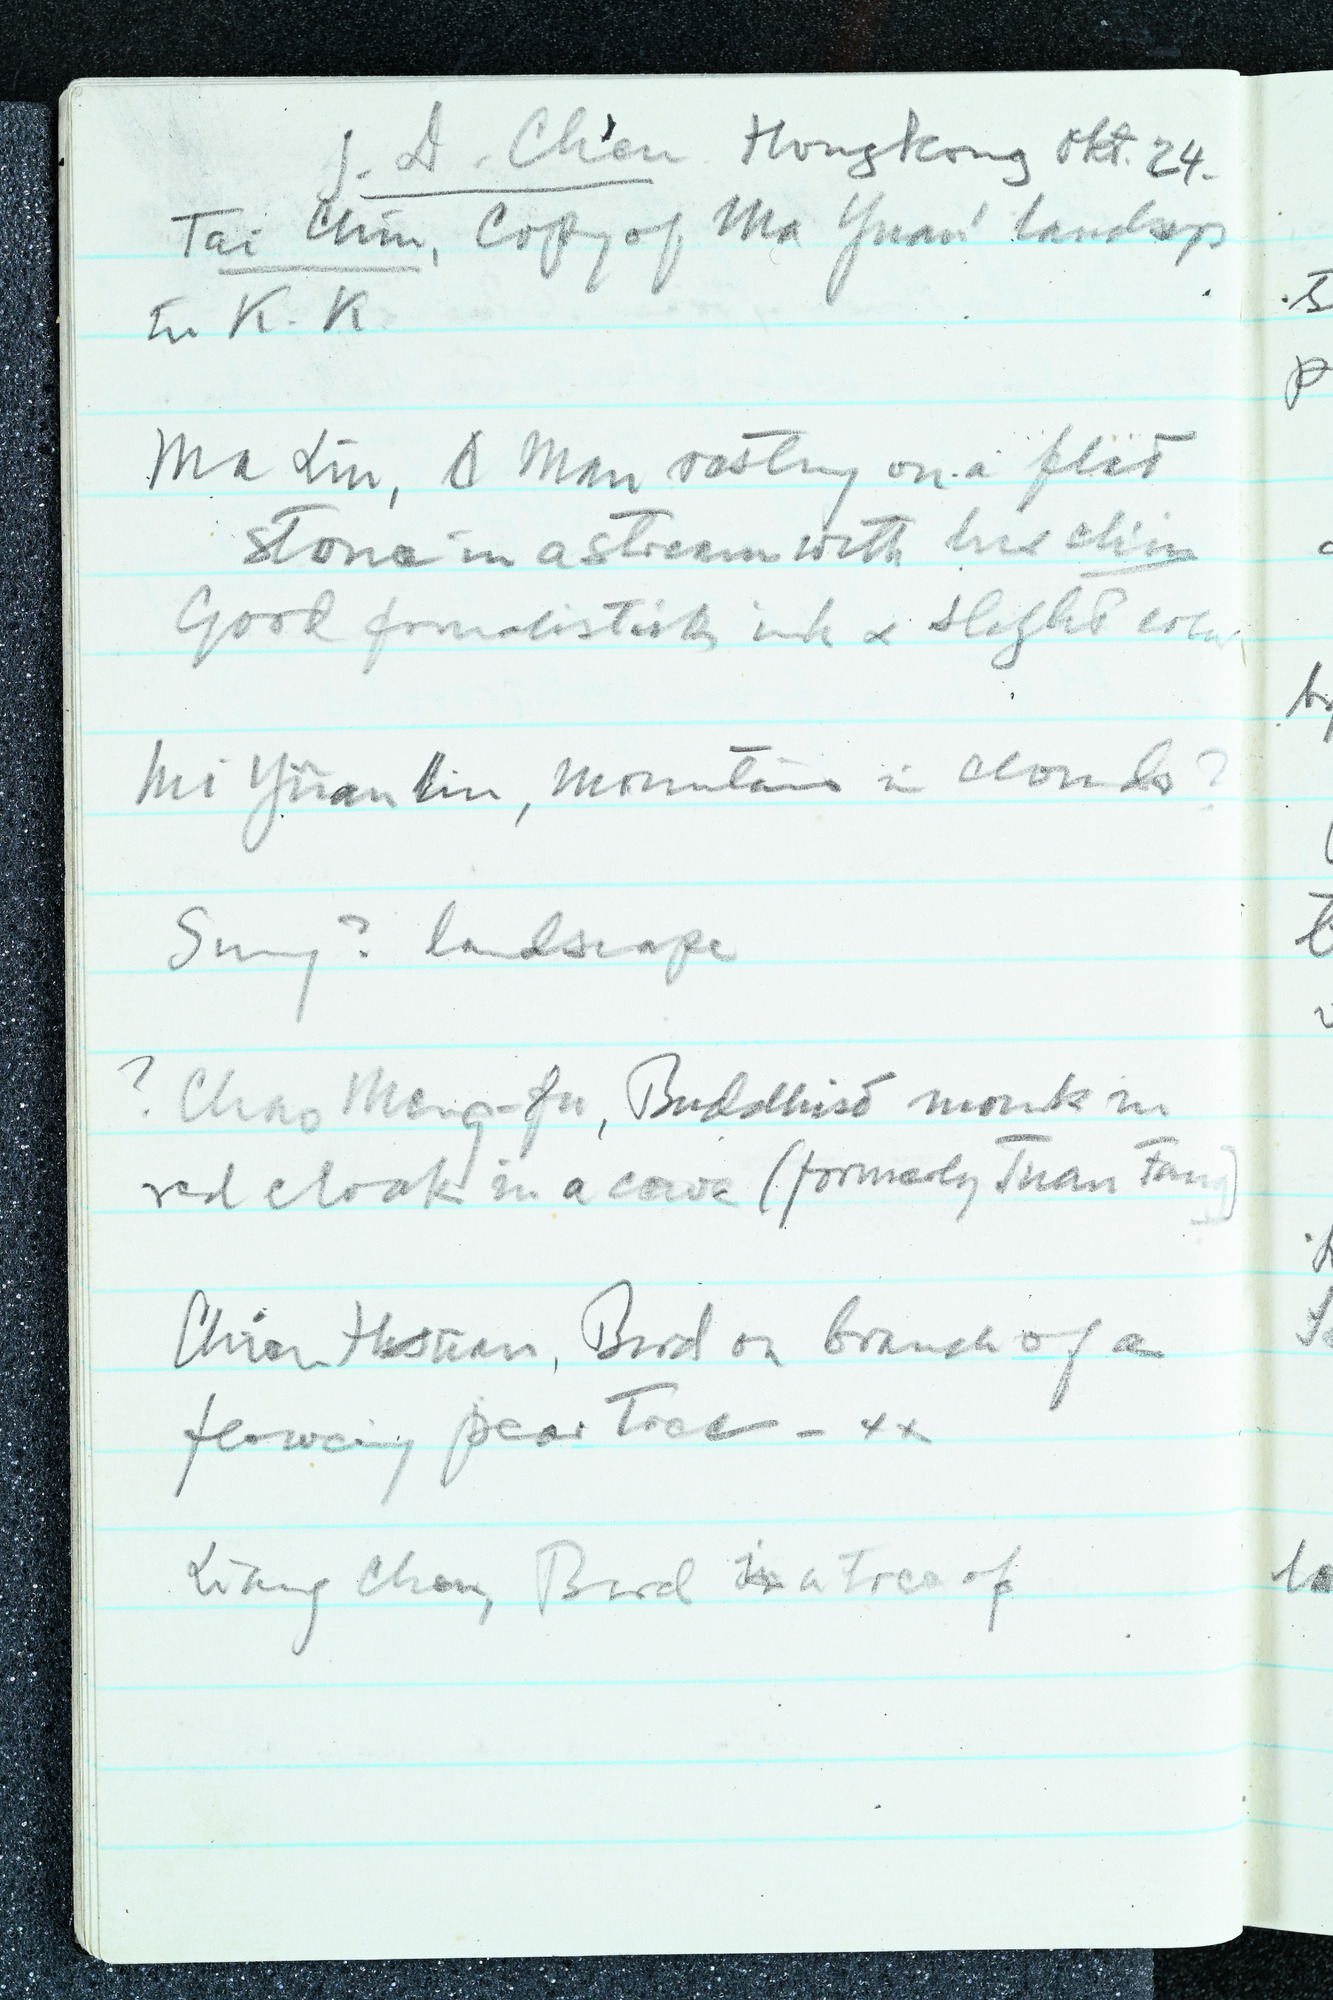 J. D. Ch'en Hongkong Okt. 24.
Tai Chin, Copy of Ma Yuan' landscp
in K. K.
Ma Lin, A Man resting on a flat
stone in a stream with his chin
Good formalistisk ink & slight color
Mi Yüan, Mountains in clouds?
Sung? landscape
? Chao Meng-fu, Buddhist monk in
red cloak in a cave (formerly Tuan Fang)
Ch'ien Hsüan, Bird on branch of a
flowering pear tree - xx
Liang Chen, Bird in a tree of